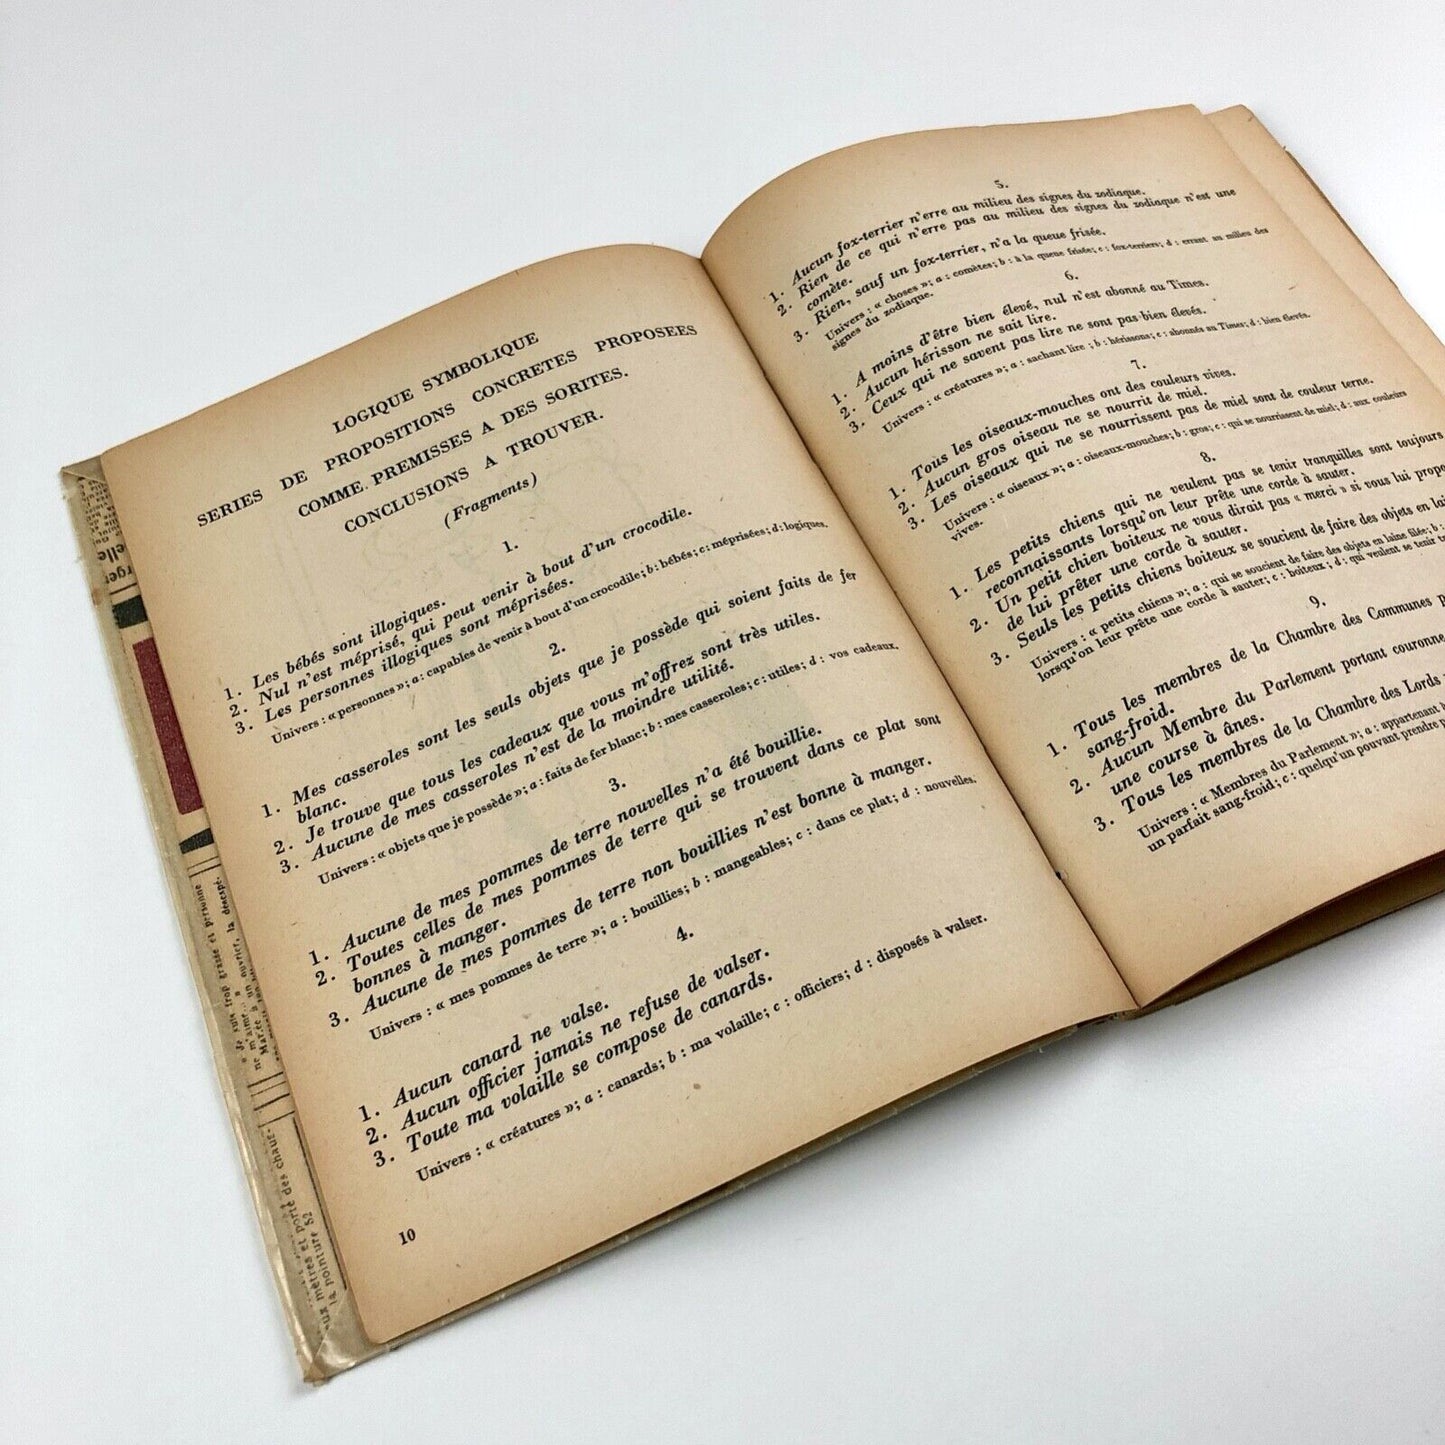 LOGIQUE SYMBOLIQUE
SERIES DE PROPOSITIONS CONCRETES PROPOSEES
COMME PREMISSES A DES SORITES.
CONCLUSIONS A TROUVER.
(Fragments)
1.
1. Les bébés sont illogiques.
2. Nul n'est méprisé, qui peut venir à bout d'un crocodile.
3. Les personnes illogiques sont méprisées.
Univers : « personnes »; a: capables de venir à bout d'un crocodile; b: bébés; c: méprisées; d: logiques.
2.
1. Mes casseroles sont les seuls objets que je possède qui soient faits de fer
blanc.
2. Je trouve que tous les cadeaux que vous m'offrez sont très utiles.
3. Aucune de mes casseroles n'est de la moindre utilité.
Univers : « objets que je possède »; a : faits de fer blanc; b : mes casseroles; c : utiles; d : vos cadeaux.
3.
1. Aucune de mes pommes de terre nouvelles n'a été bouillie.
2. Toutes celles de mes pommes de terre qui se trouvent dans ce plat sont
bonnes à manger.
3. Aucune de mes pommes de terre non bouillies n'est bonne à manger.
Univers : « mes pommes de terre »; a : bouillies; b : mangeables; c : dans ce plat; d : nouvelles.
4.
1. Aucun canard ne valse.
2. Aucun officier jamais ne refuse de valser.
3. Toute ma volaille se compose de canards.
Univers : « créatures »; a : canards; b : ma volaille; c : officiers; d : disposés à valser.
10
5.
1. Aucun fox-terrier n'erre au milieu des signes du zodiaque.
2. Rien de ce qui n'erre pas au milieu des signes du zodiaque n'est une
comète.
3. Rien, sauf un fox-terrier, n'a la queue frisée.
Univers : « choses »; a : comètes; b : à la queue frisée; c : fox-terriers; d : errant au milieu des
signes du zodiaque.
6.
1. A moins d'être bien élevé, nul n'est abonné au Times.
2. Aucun hérisson ne sait lire.
3. Ceux qui ne savent pas lire ne sont pas bien élevés.
Univers : « créatures »; a : sachant lire ; b : hérissons; c : abonnés au Times; d : bien élevés.
7.
1. Tous les oiseaux-mouches ont des couleurs vives.
2. Aucun gros oiseau ne se nourrit de miel.
3. Les oiseaux qui ne se nourrissent pas de miel sont de couleur terne.
Univers : « oiseaux »; a : oiseaux-mouches; b : gros; c : qui se nourrissent de miel; d : aux couleurs
vives.
8.
1. Les petits chiens qui ne veulent pas se tenir tranquilles sont toujours
reconnaissants lorsqu'on leur prête une corde à sauter.
2. Un petit chien boiteux ne vous dirait pas « merci » si vous lui propo
de lui prêter une corde à sauter.
3. Seuls les petits chiens boiteux se soucient de faire des objets en lai
Univers : « petits chiens »; a : qui se soucient de faire des objets en laine filée; b :
lorsqu'on leur prête une corde à sauter; c : boiteux; d : qui veulent se tenir t
9.
1. Tous les membres de la Chambre des Communes p
sang-froid.
2. Aucun Membre du Parlement portant couronne
une course à ânes.
3. Tous les membres de la Chambre des Lords
Univers : « Membres du Parlement »; a : appartenant
un parfait sang-froid; c : quelqu'un pouvant prendre
« Je suis trop grasse et personne
ne m'aime
ouvrier, la
porte des chaus-
la pointure 52